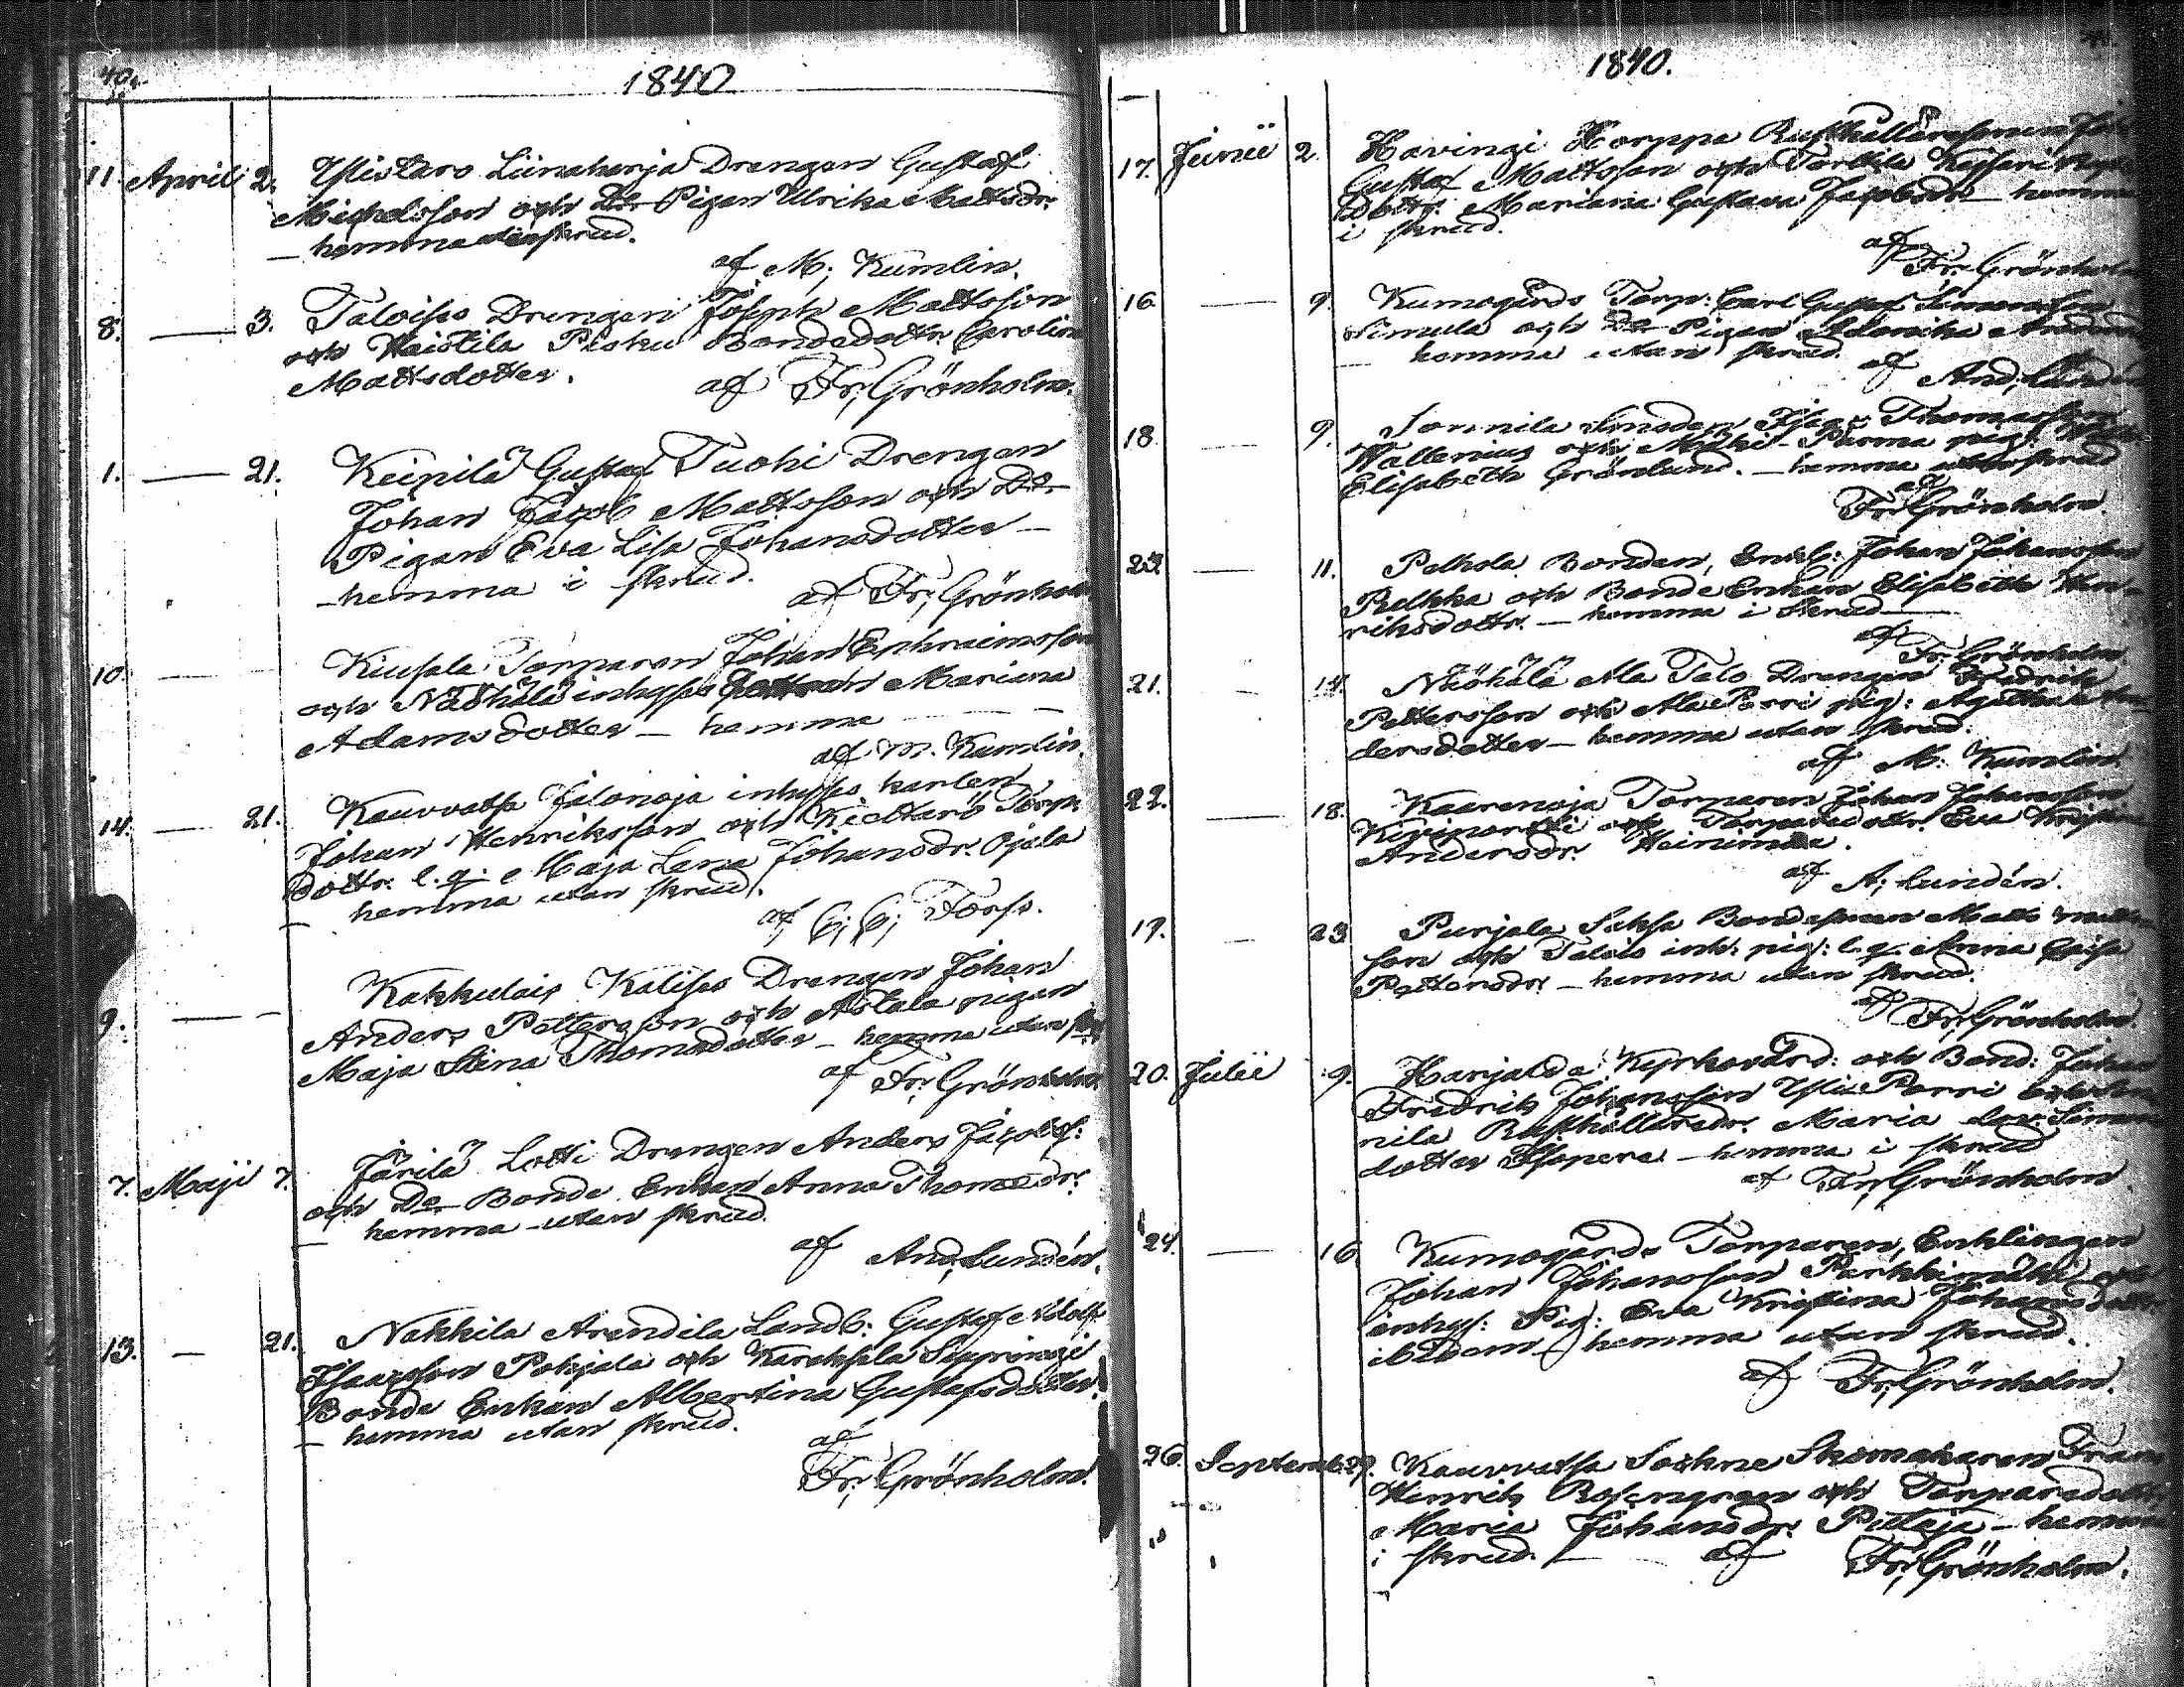 40.
1840
11. April 2. Ylistaro Liinaharja Drengen Gustaf
Michelsson och Do Pigan Ulrika Mattsdr.
— hemma utan skrud.
af M; Kumlin.
8. — 3. Taloisto Drengen Joseph Mattsson
och Haistila Pisku Bondedottr. Carolina
Mattsdotter.
af Fr; Grönholm.
1. — 21. Keipilä Gustaf Tuohi Drengen
Johan Jacob Mattsson och Do
Pigan Eva Lisa Johansdotter —
— hemma i skrud.
af Fr; Grönholm
10. — Kiusala Torparen Johan Ephraimsson
och Näöhälä inhyses Mariana
Adamsdotter — hemma —
af M. Kumlin.
14. — 21. Kauvvatsa Jalonoja inhyses karlen
Johan Henriksson och Kiettarö Torp
dottr. l.q. Maja Lena Johansdr. Ojala
— hemma utan skrud.
af C; C; Forss.
9. — Kakkulais Kaliso Drengen Johan
Anders Pettersson och Astala pigan
Maja Stina Thomasdotter — hemma utan
af Fr; Grönholm
7. Maji 7. Järilä Lotti Drengen Anders Jacobss:
och Do Bonde Enkan Anna Thomasdr.
— hemma utan skrud.
af And; Lundén.
13. — 21. Nakkila Arendila Landb: Gustaf Adolf
Isaacsson Pohjala och Karhola
Bonde Enkan Albertina Gustafsdotter.
— hemma utan skrud.
af
Fr; Grönholm.
1840.
17. Junii 2. Havingi Horppa Rusthållaresonen
Gustaf Mattsson och Tortila Keisari
dottr. Mariana Gustava Jacobsdr — hemma
i skrud.
af
Fr; Grönholm
16. — 9. Kumogårds Torp: Carl Gustaf Simonsson
Simula och Do Pigan
— hemma utan skrud.
af
And; Lundén
18. — 9. Sonnila Thomasson
Wallenius och
Elisabeth Grönlund. — hemma utan skrud
af
Fr; Grönholm.
23. — 11. Pelhola Bonden, Enkl: Johan Johansson
Pelkka och Bonde Enkan Elisabeth Hen-
riksdottr. — hemma i skrud —
af
Fr; Grönholm.
21. — 14. Näöhälä Ala Talo Drengen Fredrik
Pettersson och Ala Porri pig: Agatha An-
dersdotter — hemma utan skrud.
af M: Kumlin.
22. — 18. Kaarenoja Torparen Johan Johansson
och Torparedottr. Eva Kristina
Andersdr.
af A; Lundén.
19. — 23. Purjala Seksa Bondesonen Matts Matts-
son och Talois inh: pig: l.q. Anna Caisa
Pettersdr. — hemma utan skrud.
af
Fr; Grönholm.
20. Julii 9. Harjalda Kyrkovärd: och Bond: Johan
Fredrik Johansson Yli Porri och
nila Rusthållaredr. Maria Lov: Simons
dotter — hemma i skrud
af Fr; Grönholm.
24. — 16. Kumogårds Torparen, Enklingen
Johan Johansson Parkkimäki och
inhys: Pig: Eva Kristina Johansdottr.
ibidem — hemma utan skrud.
af Fr; Grönholm.
26. Septemb. 29. Kauvvatsa Sockne Skomakaren Frans
Henrik Rosengren och Torparedottr.
Maria Johansdr. — hemma
i skrud. — af Fr; Grönholm.